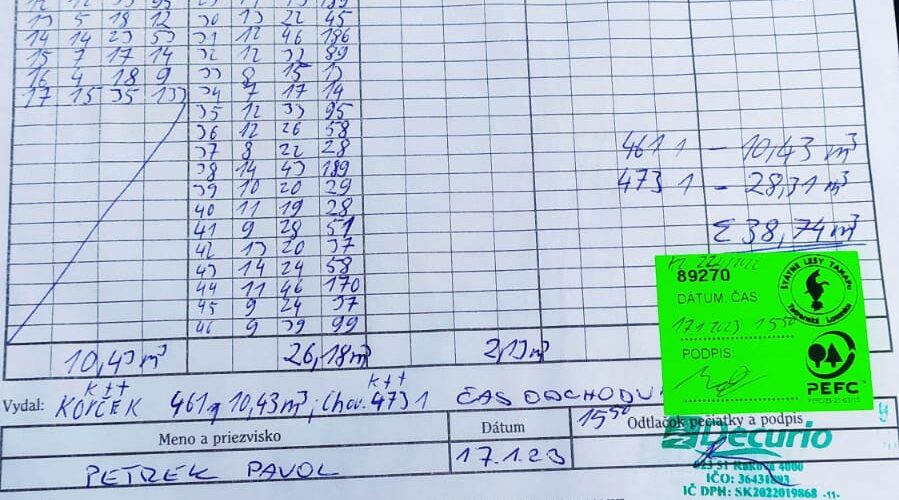 13 5 18 12 30 13 22 45
14 14 23 53 31 12 46 186
15 7 17 14 32 12 32 89
16 4 18 9 33 8 15 13
17 15 35 133 34 7 17 14
35 12 33 95
36 12 26 58
37 8 22 28
38 14 43 189
39 10 20 29
40 11 19 28
41 9 28 51
42 13 20 37
43 14 24 58
44 11 46 170
45 9 24 37
46 9 39 99
461 1 - 10,43 m³
473 1 - 28,31 m³
Σ 38,74 m³
89270
DÁTUM, ČAS:
17.1.2023 15⁵⁰
PODPIS:
ŠTÁTNE LESY TANAPU
Tatranská Lomnica
PEFC
10,43m³ 26,18m³ 2,13m³
Vydal: KORČEK 461 10,43m³; Chov. 473 1 ČAS ODCHODU
15⁵⁰
Meno a priezvisko Dátum Odtlačok pečiatky a podpis
PETREK PAVOL 17.1.23
Decurio
023 51 Raková 4000
IČO: 36431893
IČ DPH: SK2022019868 -11-